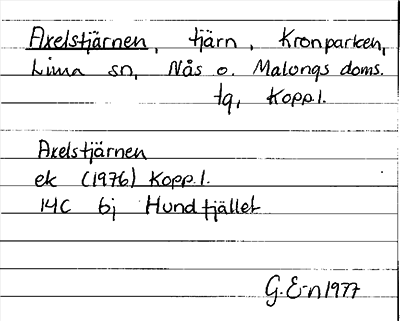 Axelstjärnen, tjärn, Kronparken,
Lima sn, Nås o. Malungs doms.
tg, Kopp.l.
Axelstjärnen
ek (1976) Kopp.l.
14C 6j Hundfjället
G. E-n 1977